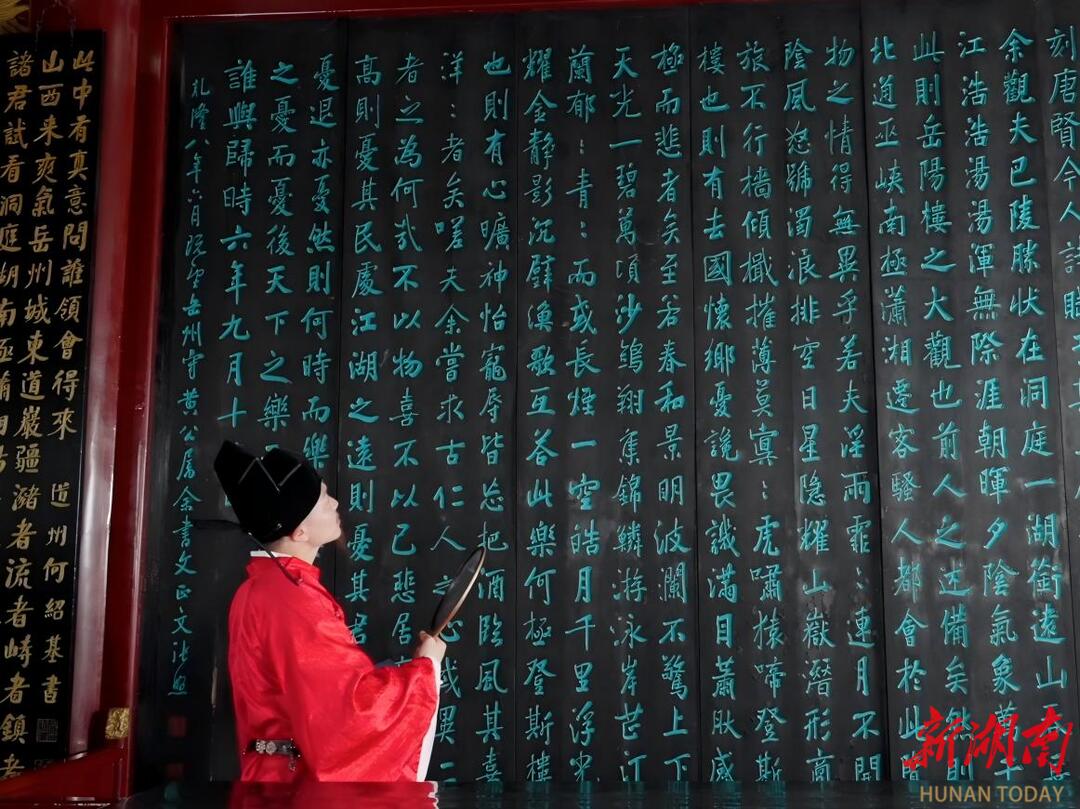 刻唐賢今人詩賦于其
余觀夫巴陵勝狀在洞庭一湖銜遠山吞
江浩浩湯湯渾無際涯朝暉夕陰氣象萬千
此則岳陽樓之大觀也前人之述備矣然則
北通巫峽南極瀟湘遷客騷人都會於此覽
物之情得無異乎若夫淫雨霏：連月不開
陰風怒號濁浪排空日星隱耀山嶽潛形商
旅不行檣傾檝摧薄莫冥：虎嘯猿啼登斯
樓也則有去國懷鄉憂讒畏譏滿目蕭然感
極而悲者矣至若春和景明波瀾不驚上下
天光一碧萬頃沙鷗翔集錦鱗游泳岸芷汀
蘭郁：青：而或長煙一空皓月千里浮光
耀金靜影沉璧漁歌互荅此樂何極登斯樓
也則有心曠神怡寵辱皆忘把酒臨風其喜
洋：者矣嗟夫余嘗求古仁人之心或異二
者之為何哉不以物喜不以己悲居
高則憂其民處江湖之遠則憂其君
憂退亦憂然則何時而樂
之憂而憂後天下之樂
誰與歸時六年九月十
乾隆八年六月既望岳州守黃公屬余書文正文 張照
此中有真意問誰領會得來 道州何紹基書
山西来爽氣岳州城東道巖疆瀦者流者峙者鎮者
諸君試看洞庭湖南極瀟湘
新湖南
HUNAN TODAY